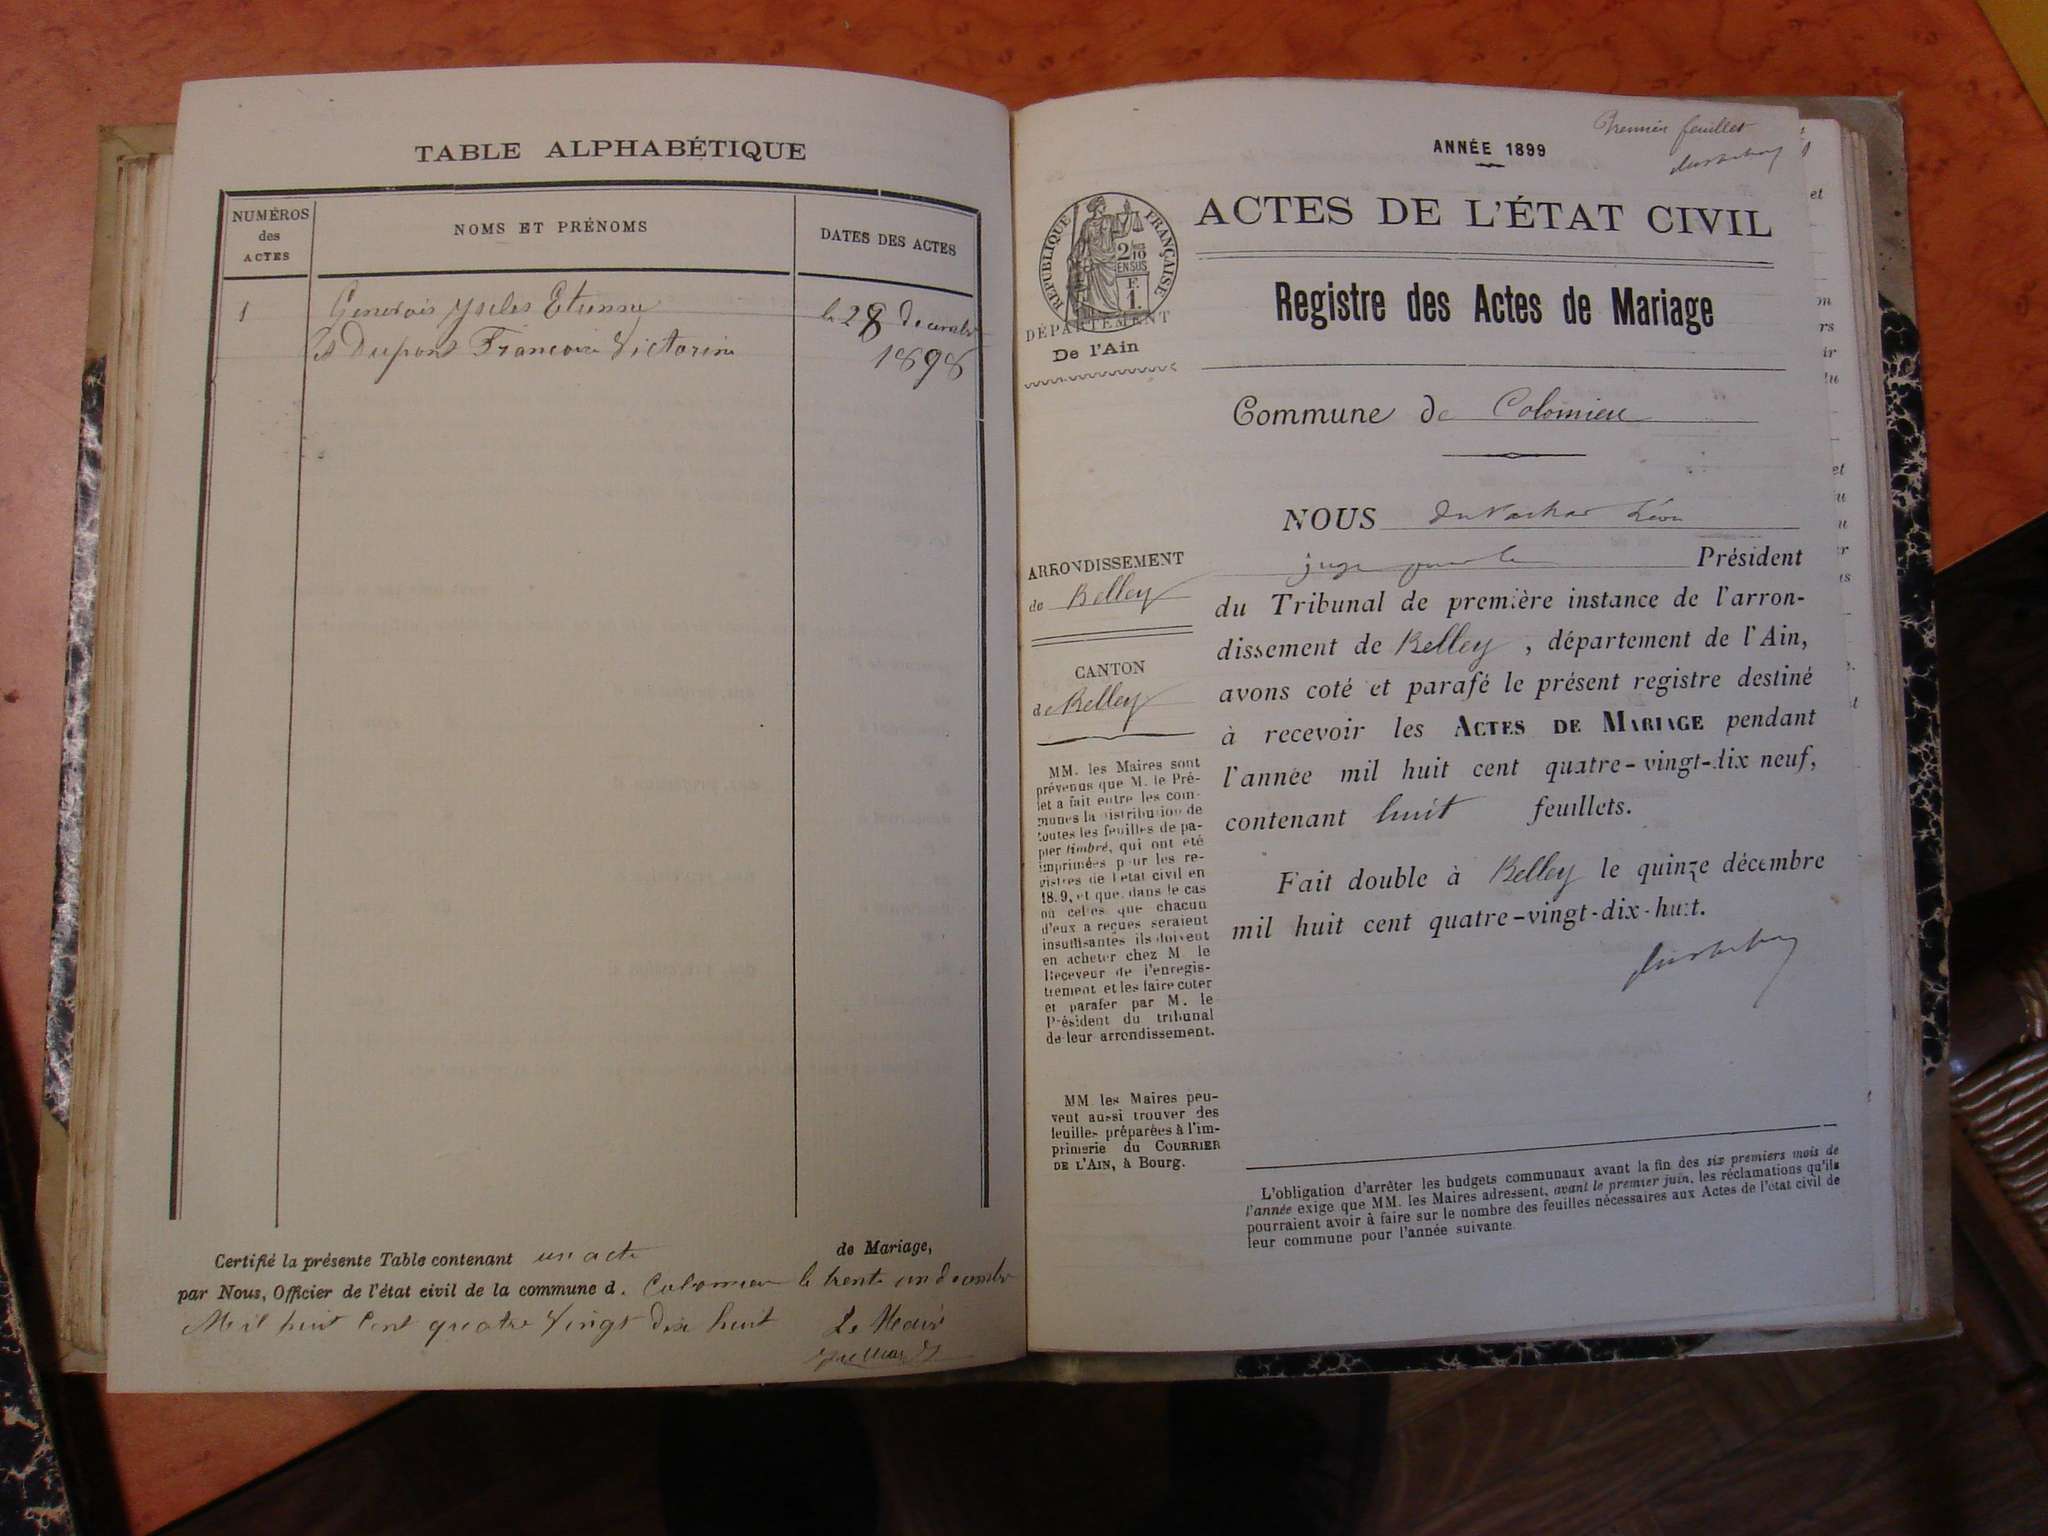 TABLE ALPHABÉTIQUE
NUMÉROS
des
ACTES
NOMS ET PRÉNOMS
DATES DES ACTES
1
Genevois Jules Etienne
le 28 Decembre
Et Dupont Francoise Victorine
1898
Certifié la présente Table contenant un acte de Mariage,
par Nous, Officier de l'état civil de la commune d. Colomieu le trente un décembre
Mil huit Cent quatre Vingt dix huit
Le Maire
Premier feuillet
ANNÉE 1899
ACTES DE L'ÉTAT CIVIL
RÉPUBLIQUE FRANÇAISE
2/10
EN SUS
F.
1.
DÉPARTEMENT
De l'Ain
Registre des Actes de Mariage
Commune de Colomieu
NOUS Léon
juge Président
du Tribunal de première instance de l'arron-
dissement de Belley, département de l'Ain,
avons coté et parafé le présent registre destiné
à recevoir les ACTES DE MARIAGE pendant
l'année mil huit cent quatre-vingt-dix neuf,
contenant huit feuillets.
Fait double à Belley le quinze décembre
mil huit cent quatre-vingt-dix-huit.
ARRONDISSEMENT
de Belley
CANTON
de Belley
MM. les Maires sont
prévenus que M. le Pré-
fet a fait entre les com-
munes la distribution de
toutes les feuilles de pa-
pier timbré, qui ont été
imprimées pour les re-
gistres de l'état civil en
1899, et que, dans le cas
où celles que chacun
d'eux a reçues seraient
insuffisantes ils doivent
en acheter chez M. le
Receveur de l'enregis-
trement et les faire coter
et parafer par M. le
Président du tribunal
de leur arrondissement.
MM les Maires peu-
vent aussi trouver des
feuilles préparées à l'im-
primerie du COURRIER
DE L'AIN, à Bourg.
L'obligation d'arrêter les budgets communaux avant la fin des six premiers mois de
l'année exige que MM. les Maires adressent, avant le premier juin, les réclamations qu'ils
pourraient avoir à faire sur le nombre des feuilles nécessaires aux Actes de l'état civil de
leur commune pour l'année suivante.